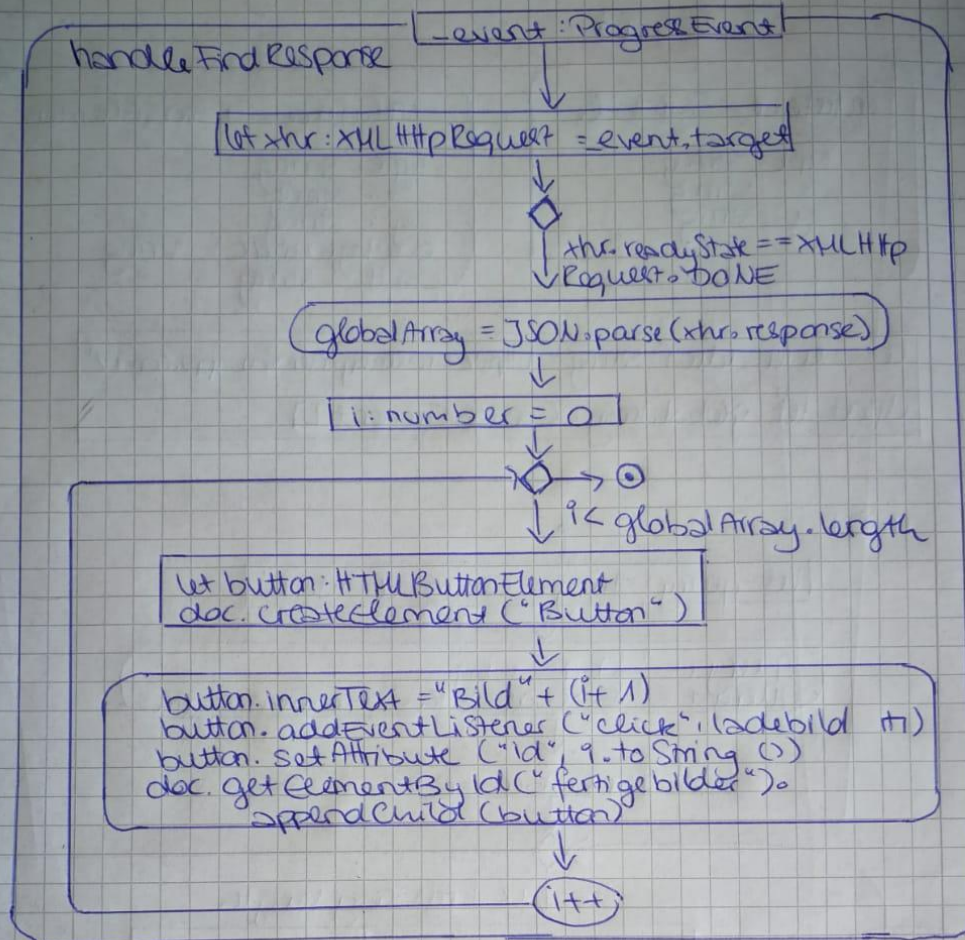 _event : ProgressEvent
handleFindResponse
let xhr : XMLHttpRequest = _event.target
xhr.readyState == XMLHttp
Request.DONE
globalArray = JSON.parse(xhr.response)
i: number = 0
i < globalArray.length
let button: HTMLButtonElement
doc.createElement("Button")
button.innerText = "Bild" + (i+1)
button.addEventListener("click",ladebild
button.setAttribute("Id", i.toString())
doc.getElementById("fertigebilder").
appendChild(button)
i++